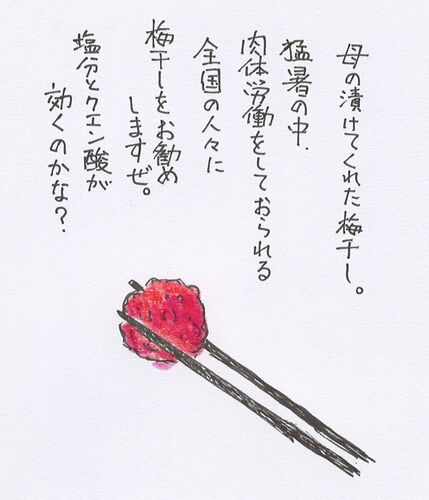 母の漬けてくれた梅干し。
猛暑の中、
肉体労働をしておられる
全国の人々に
梅干しをお勧め
しますぜ。
塩分とクエン酸が
効くのかな？